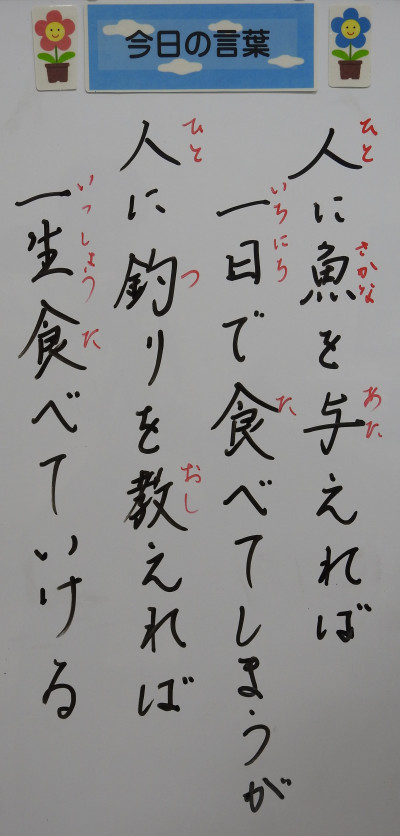 今日の言葉
人に魚を与えれば
ひと さかな あた
一日で食べてしまうが
いちにち た
人に釣りを教えれば
ひと つ おし
一生食べていける
いっしょう た